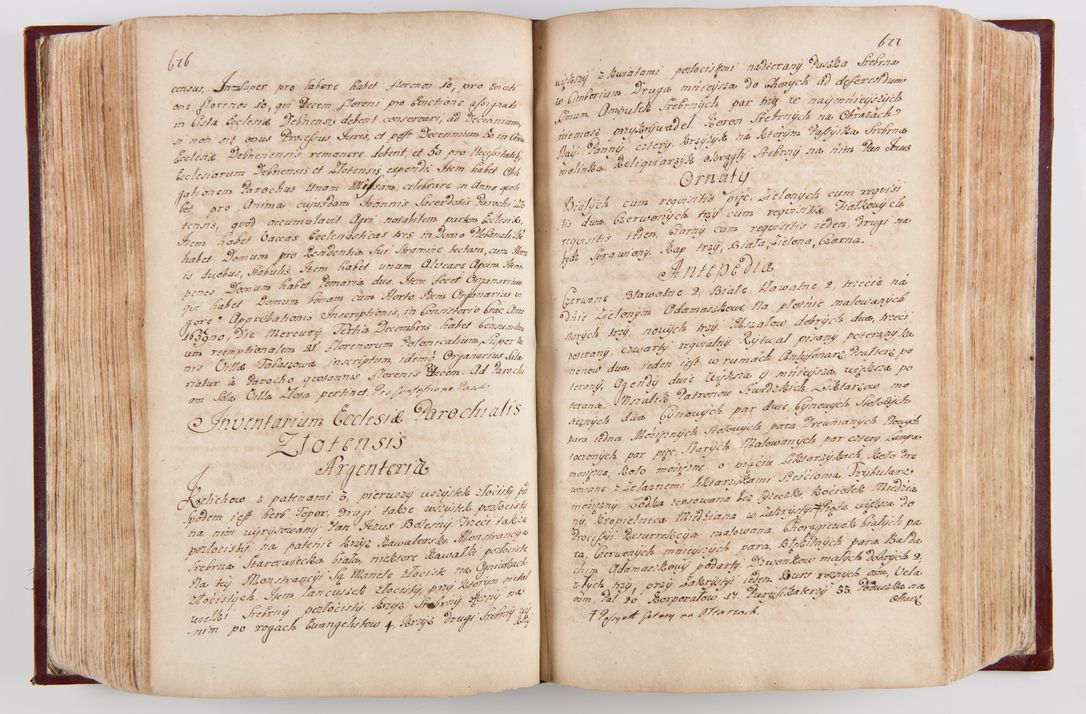 626
census, Insuper pro labore habet florenos 10, pro
one florenos 10, qui Decem floreni pro assignati
in Cista Ecclesiæ Debnensis debent conservari, ad Decennium
si non sit onus Processus Juris, et post Decennium 50 in Cista
Ecclesiæ Debnenensis remanere debent, et 50 pro Necessitatib
Ecclesiarum Debnensis et Zlotensis expendi. Item habet Obli
gationem Parochus Unam Missam celebrare in Anno quoli
bet pro Anima cujusdam Joannis Sacerdotis Parochi Zlo
tensis, quod accumulavit Agri notabilem partem Ecclesiæ.
Item habet Vaccas Ecclesiasticas tres in Domo Plebanali.
habet Domum pro Residentia Sui Stramine tectam, cum
is duobus, Stabulis. Item habet unam Alveare Apum. Item
penes Domum habet Pomaria duo. Item fovet Organarium
qui habet Domum bonam cum Horto. Item Organarius vi
gore Approbationis Inscriptionis, in Consistorio Anno
1639no, Die Mercurij Tertia Decembris habet Censum
um reemptionalem 21 florenorum Polonicalium, Super bo
nis Villæ Tabaszowa inscriptum, idemq Organarius Sala
riatur à Parocho quotannis florenis Decem. Ad Parochi
am Sola Villa Zlota pertinet.
Inventarium Ecclesiæ Parochialis
Zlotensis
Argenteria
Kielichow z patenami 3, pierwszy wszystek złocisty, pod
spodem jest herb Topor, Drugi także wszystek pozłocisty
na nim wyrysowany Pan Jezus Bolesny Trzeci także
pozłocisty, na patenie krzyż Kawalerski Monstrancya
Srebrna Staroswiecka biała, niektore Kawałki pozłociste
Na tej Monstrancyi Są Manele złociste na Ogniwkach
złocistych Item Łancuszek złocisty, przy ktorym metal
wielki Srebrny pozłocisty. Krzyż Srebrny na
nim po rogach Ewangelistow 4. Krzyż drugi Srebrny

622
większy z Kwiatami pozłocistemi nadterany, Puszka Srebrna
w Cimborium. Druga mnieysza do Chorych ad deferendum
Ampułek Srebrnych par trzy te naymnieyszych
niemasz przykrywadeł. Koron Srebrnych na Obrazach
Nayś: Panny cztery. Krzyżyk na ktorym Passyika Srebrna
malinka. Reliqwiarzyk okrągły Srebrny na nim Pan Jezus
Ornaty
Białych cum requisitis pięc, Zielonych cum requisi
tis dwa, Czerwonych trzy cum requisitis. Fiałkowych
requisitis ieden. Czarny cum requisitis ieden, drugi na
Sprawiony. Kap trzy, Biała, Zielona, Czarna.
Antepedia
Czerwone Bławatne 2, Białe Bławatne 2, trzecie na
dnie Zielonym Adamaszkowe. Na płotnie malowanych
starych trzy, nowych trzy. Mszałow dobrych dwa, trzeci
poterany, czwarty requialny. Rytuał pisany poterany, Ka
nonow dwa, ieden iest w rumach Antyfonarz Psałterz po
terany, Agendy dwie większa y mnieysza, większa po
terana. Mszalik Patronow Szwedzkich. Liktarzow mo
siężnych dwa Cynowych par dwie Cynowych Stołowych
para iedna, Mosiężnych Stołowych para. Drewnianych Nowych
toczonych par pięc, Starych Malowanych par cztery. Lampa
mosiężna, Koło mosiężne o pięciu Liktarzykach, Koło dre
wniane z Zelaznemi liktarzykami Sześcioma. Trybularz
mosiężny. Łodka teosowana bez łyżeczki, Kociołek Miedzia
ny, Kropielnica Miedziana w Zakrystyi ‡ większa do
Processyi. Resurrekcya malowana. Chorągiewek białych pa
ra, Czerwonych mnieyszych para, Błękitnych para. Balda
chim Adamaszkowy podarty. Dzwonkow małych dobrych 2,
złych trzy, przy Zakrystyi ieden. Burs rożnych osm, Vela
osm, Pal 20. Korporałow 17. Puryfikaterzy 33. Poduszka na
Ołtarz
‡ na Ołtarzach